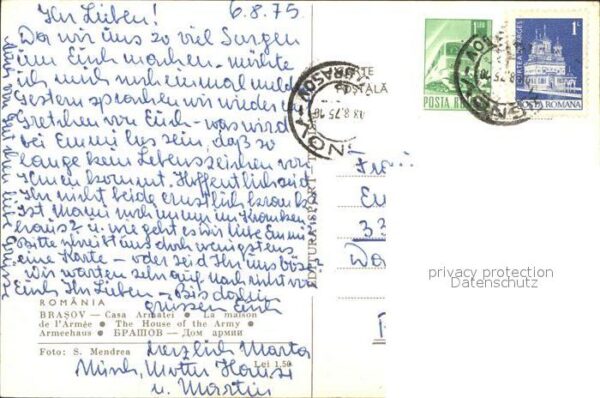 Ihr Lieben! 6.8.75
Da wir uns so viel Sorgen
um Euch machen - möchte
ich mich nocheinmal melden
Gestern sprachen wir wieder
Gretchen von Euch - was wird
bei Emmi los sein, daß so
lange kein Lebenszeichen von
Ihnen kommt. Hoffentlich seid
Ihr nicht beide ernstlich krank
Ist Mami noch immer im Kranken
haus? u. wie geht es Dir liebe Emmi
Bitte schreibt uns doch wenigstens
eine Karte - oder seid Ihr uns böse?
Wir warten sehr auf Nachricht von
Euch Ihr Lieben - Bis dahin
grüssen Euch
herzlich Marta
Misch, Mutter Hansi
u. Martin
Auch von Gretchen liebe Grüsse
ROMÂNIA
BRAŞOV — Casa Armatei ● La maison
de l'Armée ● The House of the Army ●
Armeehaus ● БРАШОВ — Дом армии
Foto: S. Mendrea
Lei 1,50
EDITURA SPORT-
POŞTALĂ
BRASOV
8.75.16
1,50
POSTA R
1L
CURTEA DE ARGES
POSTA ROMANA
Em
33
privacy protection
Datenschutz